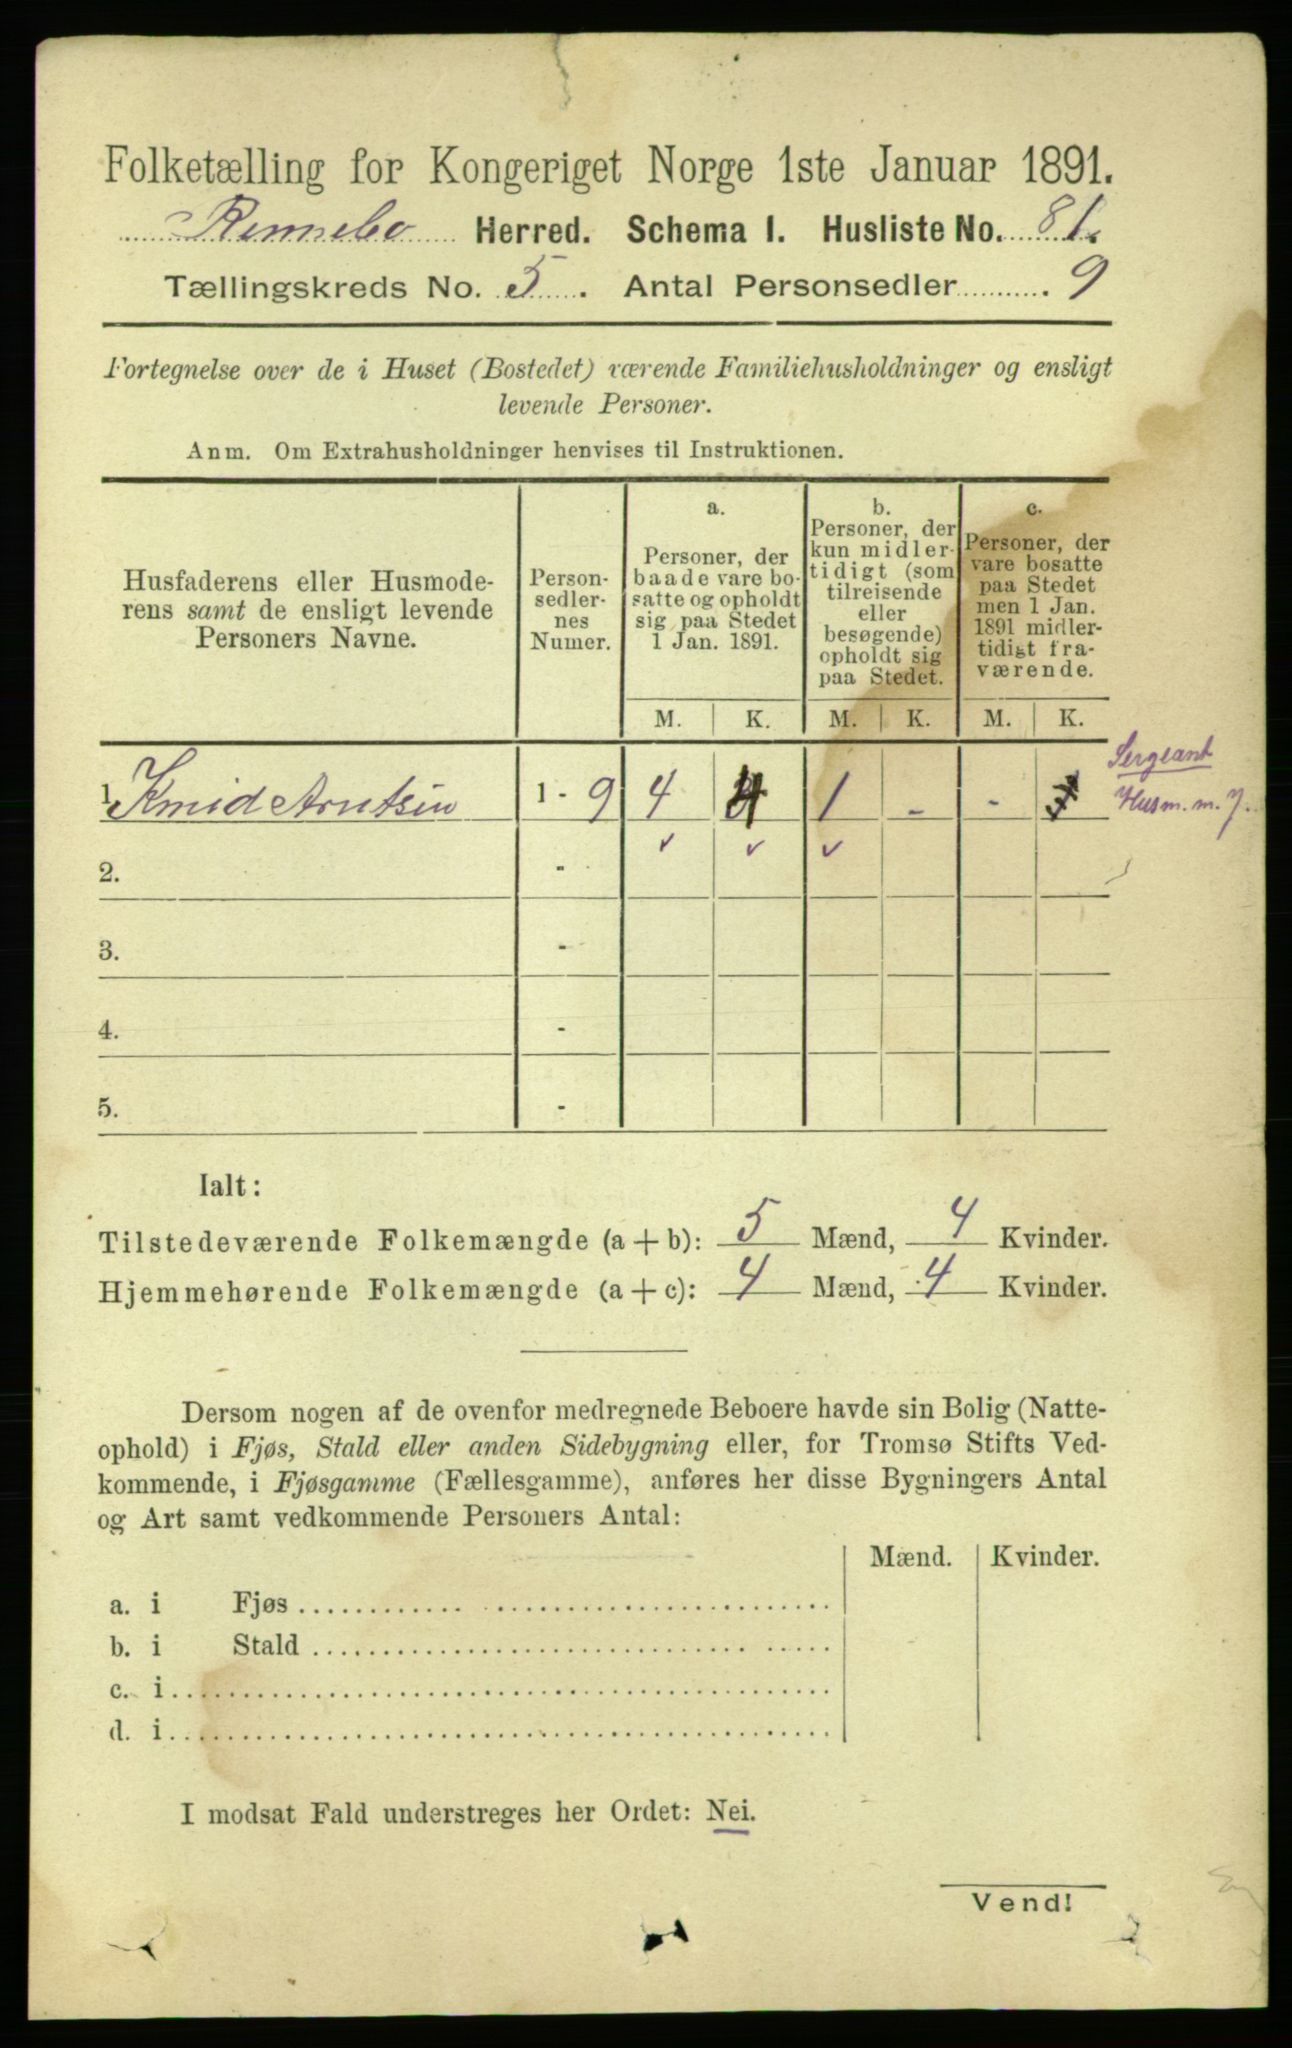 Folketælling for Kongeriget Norge 1ste Januar 1891.
Rennebo Herred. Schema I. Husliste No. 81.
Tællingskreds No. 5. Antal Personsedler 9
Fortegnelse over de i Huset (Bostedet) værende Familiehusholdninger og ensligt
levende Personer.
Anm. Om Extrahusholdninger henvises til Instruktionen.
Husfaderens eller Husmode-
rens samt de ensligt levende
Personers Navne.
Person-
sedler-
nes
Numer.
a.
Personer, der
baade vare bo-
satte og opholdt
sig paa Stedet
1 Jan. 1891.
b.
Personer, der
kun midler-
tidigt (som
tilreisende
eller
besøgende)
opholdt sig
paa Stedet.
c.
Personer, der
vare bosatte
paa Stedet
men 1 Jan.
1891 midler-
tidigt fra-
værende.
M. K. M. K. M. K.
1. Knud Arntsen 1 - 9 4 4 1 - -
Sergeant
Husm. m. J.
2. -
3. -
4. -
5. -
Ialt:
Tilstedeværende Folkemængde (a + b): 5 Mænd, 4 Kvinder.
Hjemmehørende Folkemængde (a + c): 4 Mænd, 4 Kvinder.
Dersom nogen af de ovenfor medregnede Beboere havde sin Bolig (Natte-
ophold) i Fjøs, Stald eller anden Sidebygning eller, for Tromsø Stifts Ved-
kommende, i Fjøsgamme (Fællesgamme), anføres her disse Bygningers Antal
og Art samt vedkommende Personers Antal:
Mænd. Kvinder.
a. i Fjøs
b. i Stald
c. i
d. i
I modsat Fald understreges her Ordet: Nei.
Vend!